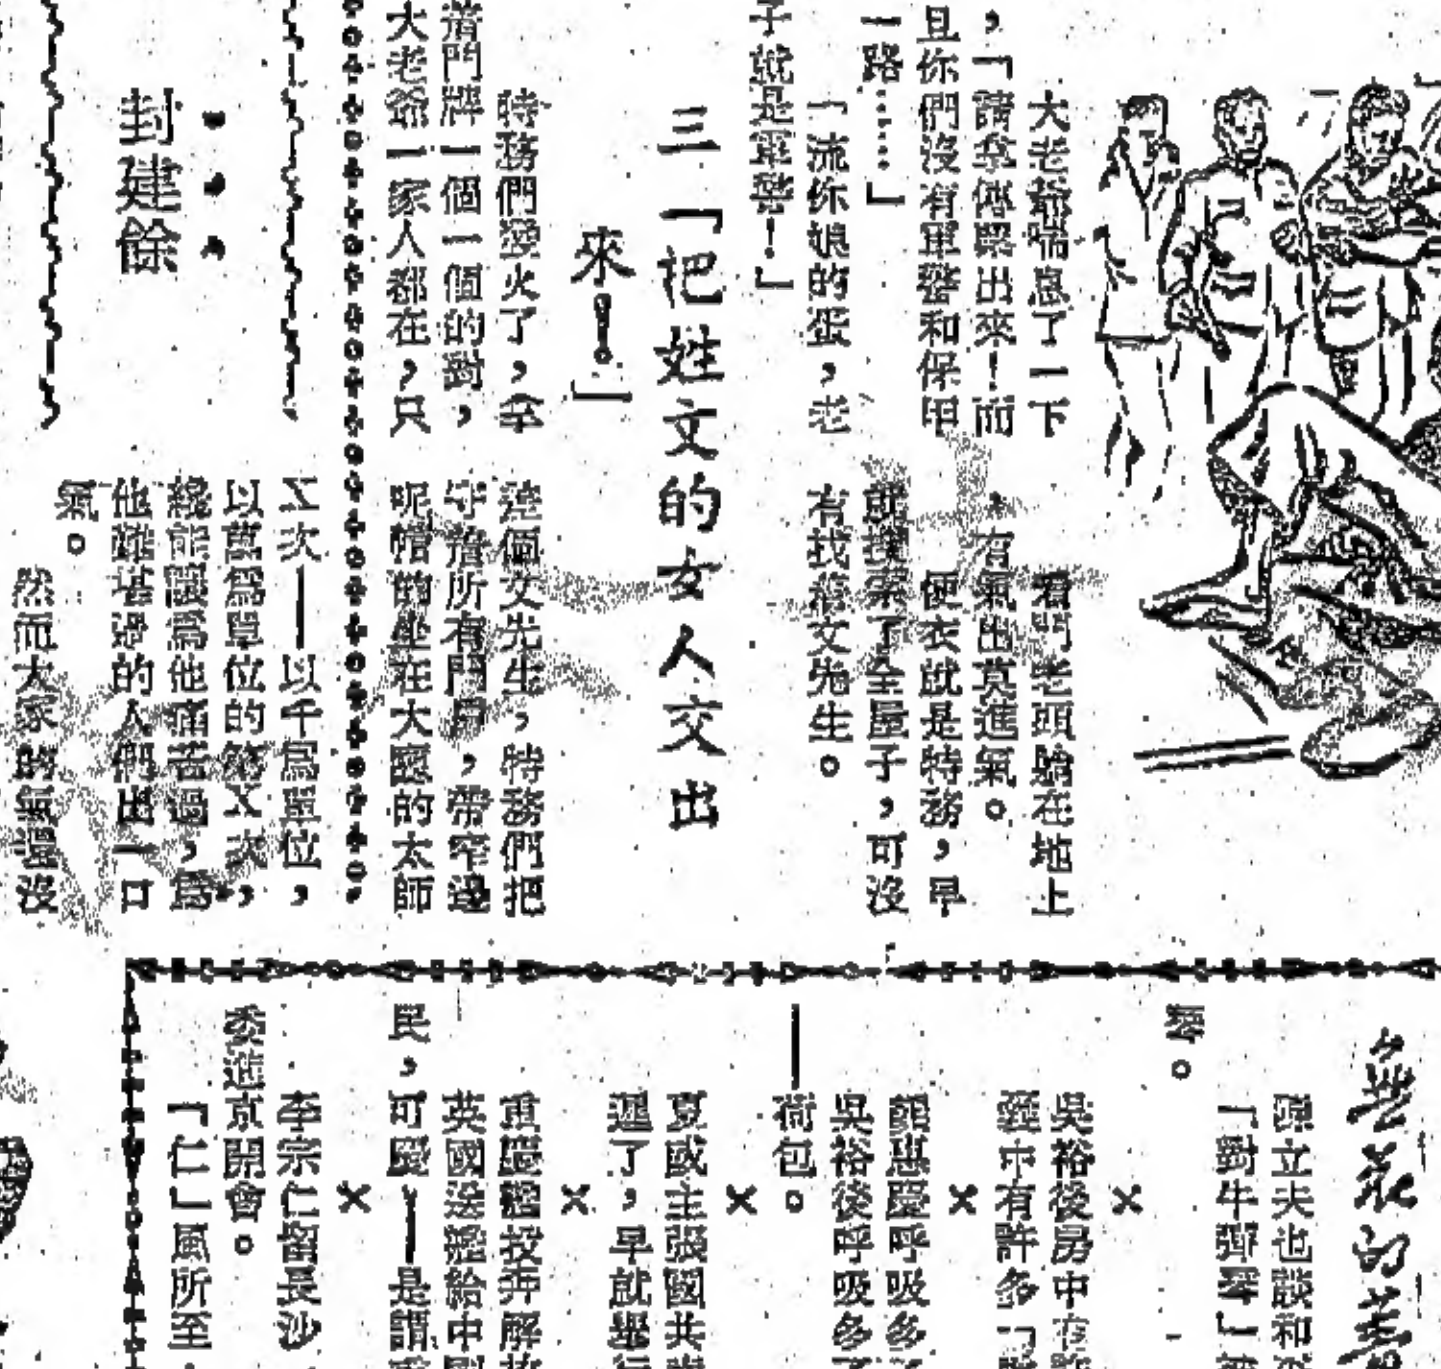 大老爺喘息了一下
，「請拿傳票出來！而
且你們沒有軍警和保甲
一路……」
「流你娘的蛋，老
子就是軍警！」
看門老頭躺在地上
，有氣出莫進氣。
便衣就是特務，早
就搜索了全屋子，可沒
有找着文先生。
三「把姓文的女人交出
來！」
特務們發火了，拿
着門牌一個一個的對，
大老爺一家人都在，只
這個女先生，特務們把
守着所有門房，帶窄邊
呢帽的坐在大廳的太師
封建餘
X次——以千爲單位，
以萬爲單位的第X次，
纔能讓爲他痛苦過，爲
他難堪過的人們出一口
氣。
然而大家的氣還沒
無花的薔
立夫也談和
「對牛彈琴」
琴。
×
吳裕後房中有
中有許多「
×
呼吸多
吳裕後呼吸多了
——荷包。
×
夏威主張國共
遲了，早就舉行
×
重慶艦投奔解放
英國送艦給中國
民，可愛——是謂
×
李宗仁留長沙，
委進京開會。
「仁」風所至，